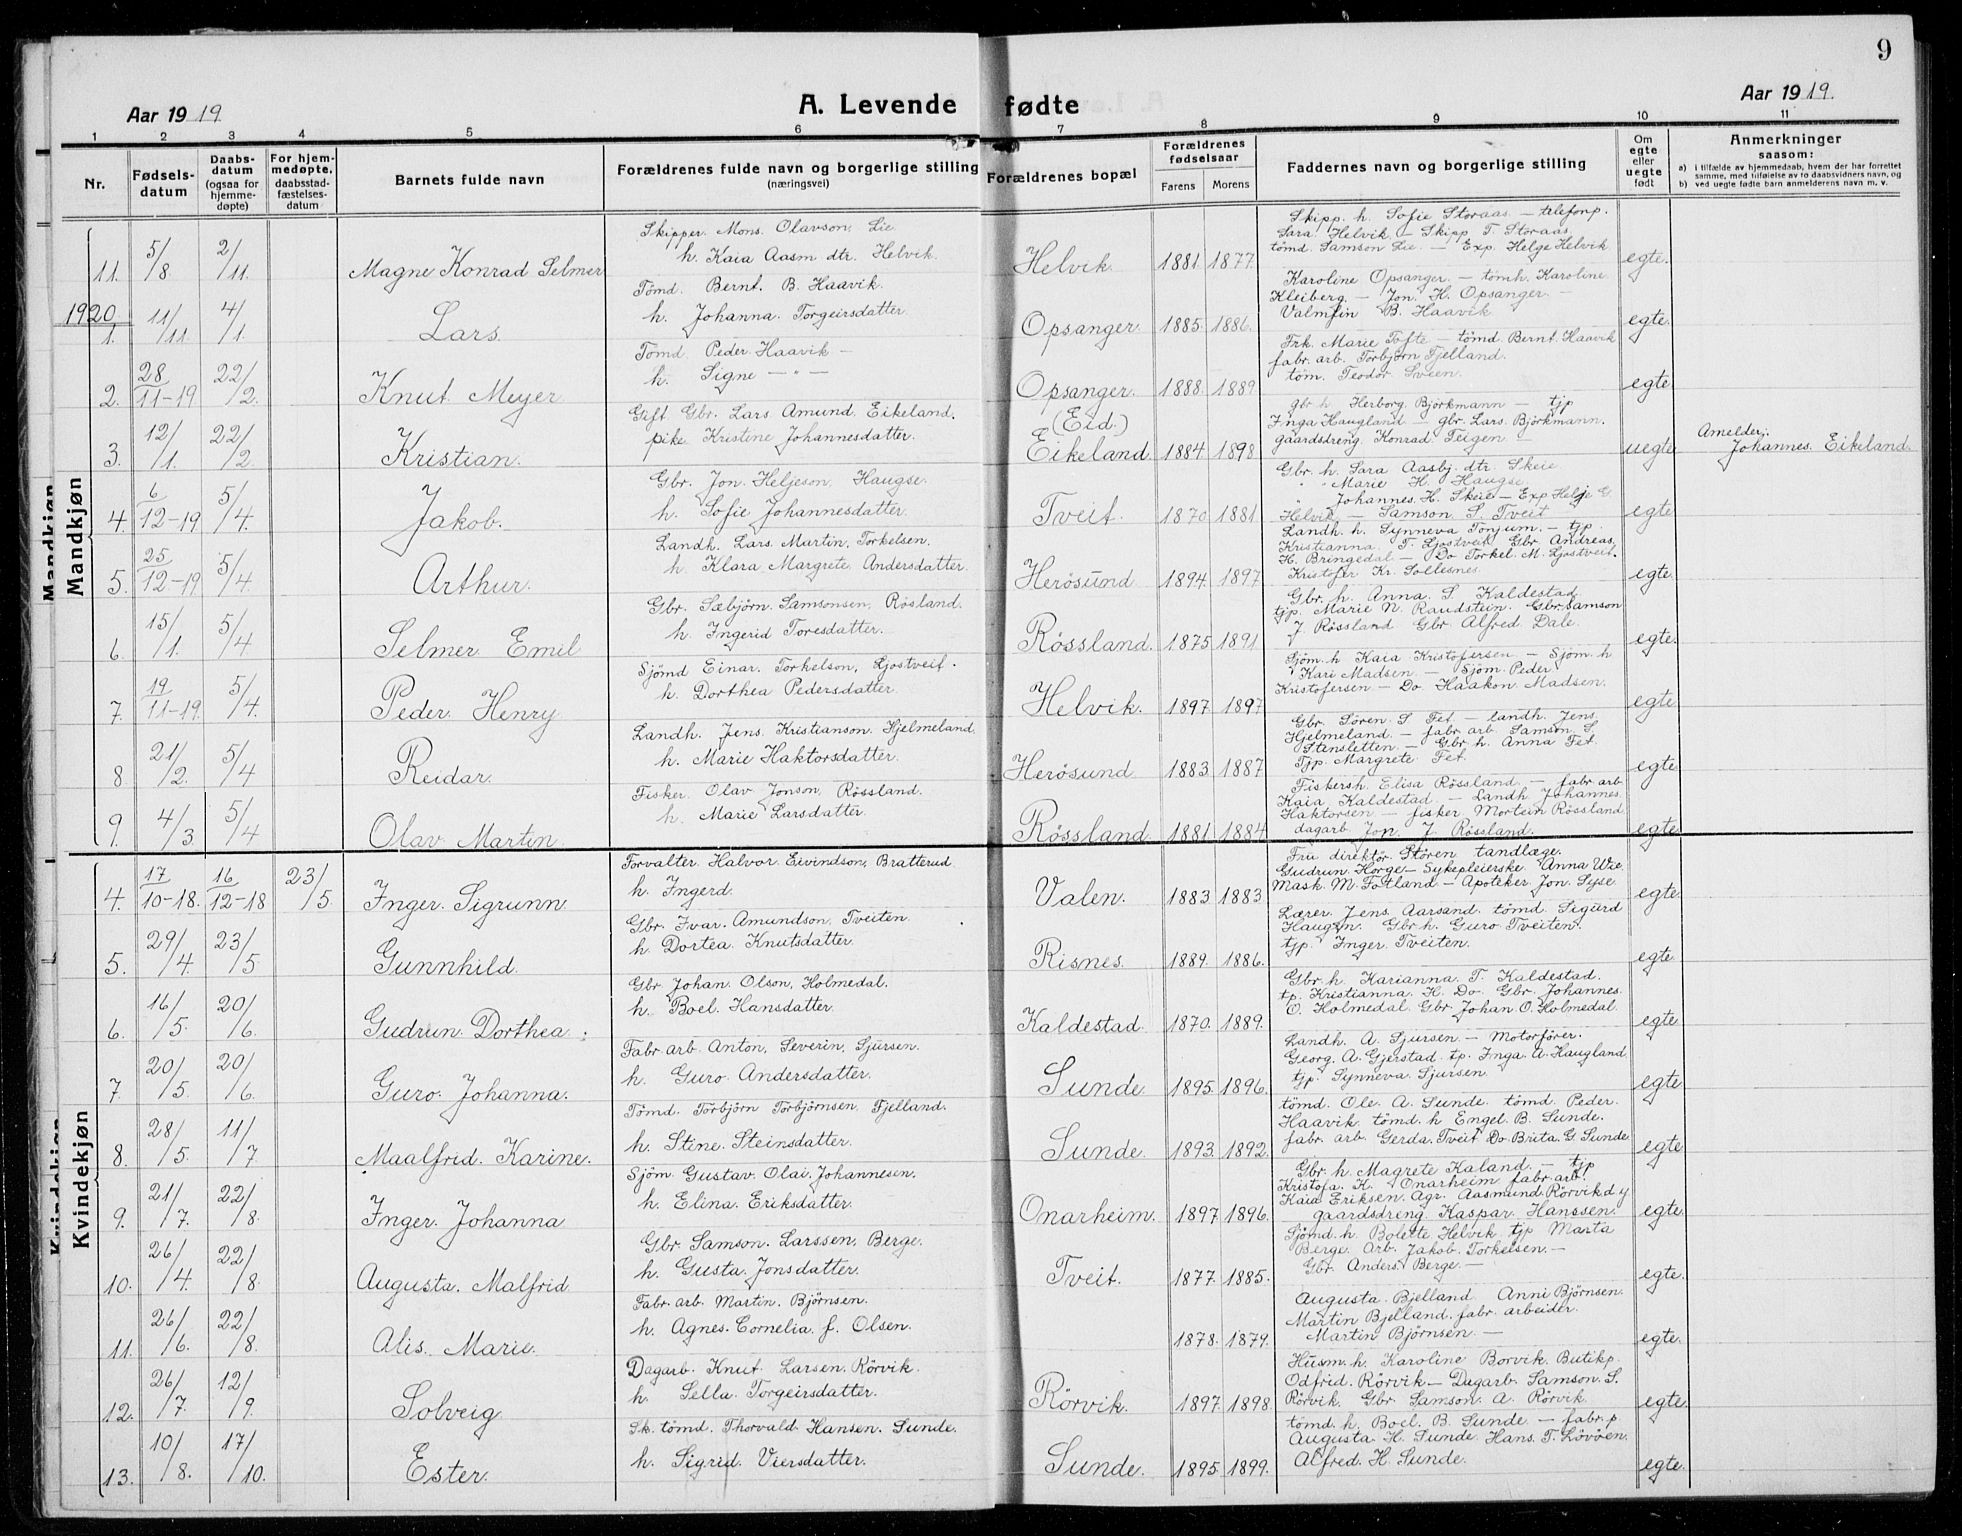 9
Aar 1919. A. Levende fødte Aar 1919.
1 2 3 4 5 6 7 8 9 10 11
Nr. Fødselsdatum Daabsdatum (ogsaa for hjemmedøpte) For hjemmedøpte. daabsstadfæstelsesdatum Barnets fulde navn Forældrenes fulde navn og borgerlige stilling (næringsvei) Forældrenes bopæl Forældrenes fødselsaar Farens Morens Faddernes navn og borgerlige stilling Om egte eller uegte født Anmerkninger saasom: a) i tilfælde av hjemmedaab, hvem der har forrettet samme, med tilføielse av to daabsvidners navn, og b) ved uegte fødte barn anmelderens navn m. v.
Mandkjøn
11. 5/8 2/11. Magne Konrad Selmer Skipper Mons. Olavson, Lie
h. Kaia Aasm dtr. Helvik. Helvik. 1881. 1877. Skipp. h. Sofie Storaas – telefonp.
Sara Helvik – Skipp T. Storaas
tömd. Samson Lie – Exp. Helge Helvik egte.
1920
1. 11/11. 4/1. Lars. Tömd. Bernt. B. Haavik.
h. Johanna. Torgeirsdatter. Opsanger. 1885. 1886. Karoline Opsanger – tömh. Karoline
Kleiberg. – Jon. H. Opsanger. –
B. Haavik egte.
2. 28/11-19 22/2. Knut. Meyer Tömd. Peder. Haavik –
h. Signe – " – Opsanger. 1888. 1889 Frk. Marie Tofte – tömd. Bernt. Haavik
fabr. arb. Torbjørn Fjelland.
töm. Teodor Sveen. egte
3. 12/1. 22/2 Kristian. Gift Gbr. Lars. Amund. Eikeland.
pike Kristine Johannesdatter. (Eid.)
Eikeland 1884 1898 gbr h. Herborg. Björkmann – tjp
Inga Haugland – gbr. Lars. Björkmann.
gaardsdreng. Konrad. Teigen – uegte Amelder;
Johannes. Eikeland.
4. 6/12-19. 5/4. Jakob. Gbr. Jon. Heljeson, Haugse.
h. Sofie Johannesdatter. Tveit. 1870 1881 Gbr. h. Sara Aasbj. dtr. Skeie
" " Marie H. Haugse
" Johannes. H. Skeie – Exp Helje G.
Helvik – Samson. S. Tveit egte.
5. 25/12-19. 5/4. Arthur. Landh. Lars. Martin. Torkelsen.
h. Klara Margrete. Andersdatter. Herösund 1894. 1897 Landh. h. Synneva Tonjum. – tjp.
Kristianna T. Ljostveit. Gbr. Andreas.
H. Bringedal – Do Torkel. M. Ljostveit.
Kristofer Kr. Sollesnes. egte.
6. 15/1. 5/4 Selmer Emil Gbr. Sæbjörn. Samsonsen, Røsland.
h. Ingerid Toresdatter. Røssland. 1875 1891 Gbr. h. Anna. S. Kaldestad
tjp. Marie N. Raudstein. Gbr. Samson
J. Røssland Gbr. Alfred. Dale. egte.
7. 19/11-19. 5/4. Peder. Henry Sjömd Einar. Torkelson, Ljostveit.
h. Dorthea Pedersdatter. Helvik. 1897 1897 Sjöm. h Kaia Kristofersen – Sjöm. h
Kari Madsen – Sjöm. Peder
Kristofersen – Do. Haakon Madsen. egte
8 21/2. 5/4 Reidar. Landh. Jens. Kristianson. Hjelmeland.
h. Marie Haktorsdatter. Herösund 1883. 1887 Gbr. Sören. S Fet – landh. Jens
Hjelmeland – fabr arb. Samson. S.
Stensletten – Gbr. h. Anna Fet.
Tjp. Margrete Fet. egte
9. 4/3. 5/4 Olav Martin Fisker. Olav Jonson, Røssland.
h. Marie Larsdatter. Røssland. 1881. 1884 Fiskersh. Elisa Røssland. – fabr. arb.
Kaia Kaldestad – Landh. Johannes.
Haktorsen – fisker Mortein Røssland
dagarb Jon J. Røssland. egte.
Kvindekjøn
4. 17/10-18. 16/12-18 23/5. Inger. Sigrunn Forvalter. Halvor. Eivindson, Bratterud.
h. Ingerd. Valen. 1883 1883. Fru direktör. Stören tandlæge.
Gudrun. Horge – Sykepleierske Anna Wie
Mask. M. Fotland – Apoteker Jon. Syse egte.
5. 29/4. 23/5 Gunnhild. Gbr. Ivar. Amundson, Tveiten.
h. Dortea. Knutsdatter. Risnes. 1889. 1886. Lærer Jens. Aarsand. tömd. Sigurd
Haugen. Gbr h. Guro Tveiten.
tjp. Inger. Tveiten. egte.
6. 16/5. 20/6 Gudrun. Dorthea. Gbr. Johan. Olson, Holmedal.
h. Boel. Hansdatter. Kaldestad 1870. 1889. Gbr h. Karianna. T. Kaldestad.
tp. Kristianna. K. Do. Gbr. Johannes.
O. Holmedal. Gbr. Johan O. Holmedal. egte.
7 20/5. 20/6. Guro. Johanna. Fabr arb. Anton, Severin, Sjursen.
h. Guro Andersdatter. Sunde. 1895. 1896. Landh. A. Sjursen – Motorförer.
Georg. A. Gjerstad. tp. Inga. A. Haugland
tjp. Synneva. Sjursen. egte
8. 28/5. 11/7 Maalfrid. Karine. Tömd. Torbjörn Torbjörnsen, Fjelland.
h. Stine. Steinsdatter. Sunde. 1893. 1892. tömd. Ole. A. Sunde. tömd. Peder.
Haavik tömd. h. Engel. B. Sunde.
fabr. arb. Gerda. Tveit Do. Brita. G. Sunde egte
9. 21/7. 22/8. Inger. Johanna Sjöm. Gustav. Olai. Johannesen.
h. Elina. Eriksdatter. Onarheim. 1897. 1896. Gbr. h. Magrete Kaland. – tjp
Kristofa. K. Onarheim fabr. arb.
Kaia Eriksen. Agr. Aasmund. Rörvik d y
gaardsdreng. Kaspar. Hanssen. egte.
10. 26/4. 22/8. Augusta. Malfrid Gbr. Samson. Larssen, Berge.
h. Gusta. Jonsdatter. Tveit. 1877. 1885. Sjömd. h. Bolette Helvik tjp Marta
Berge. Arb. Jakob. Torkelsen. –
Gbr. Anders. Berge. – egte.
11. 26/6. 22/8. Alis. Marie. Fabr. arb. Martin. Björnsen.
h. Agnes. Cornelia. f. Olsen. 1878. 1879. Augusta. Bjelland. Anni Björnsen.
Martin Bjelland. fabr. arbeider.
Martin Björnsen. – egte.
12. 26/7. 12/9. Solveig. Dagarb. Knut. Larsen. Rörvik.
h. Sella. Torgeirsdatter. Rörvik. 1897. 1898. Husm. h. Karoline Borvik. Butikp.
Odfrid. Rörvik – Dagarb. Samson. S.
Rörvik. Gbr. Samson. A. Rörvik. egte.
13. 10/8. 17/10. Ester. Sk. tömd. Thorvald. Hansen. Sunde.
h. Sigrid. Viersdatter. Sunde. 1895. 1899. tömd. h. Boel. B. Sunde. – fabr. p
Augusta. H. Sunde. Hans. T. Lövöen.
Alfred. H. Sunde. egte.